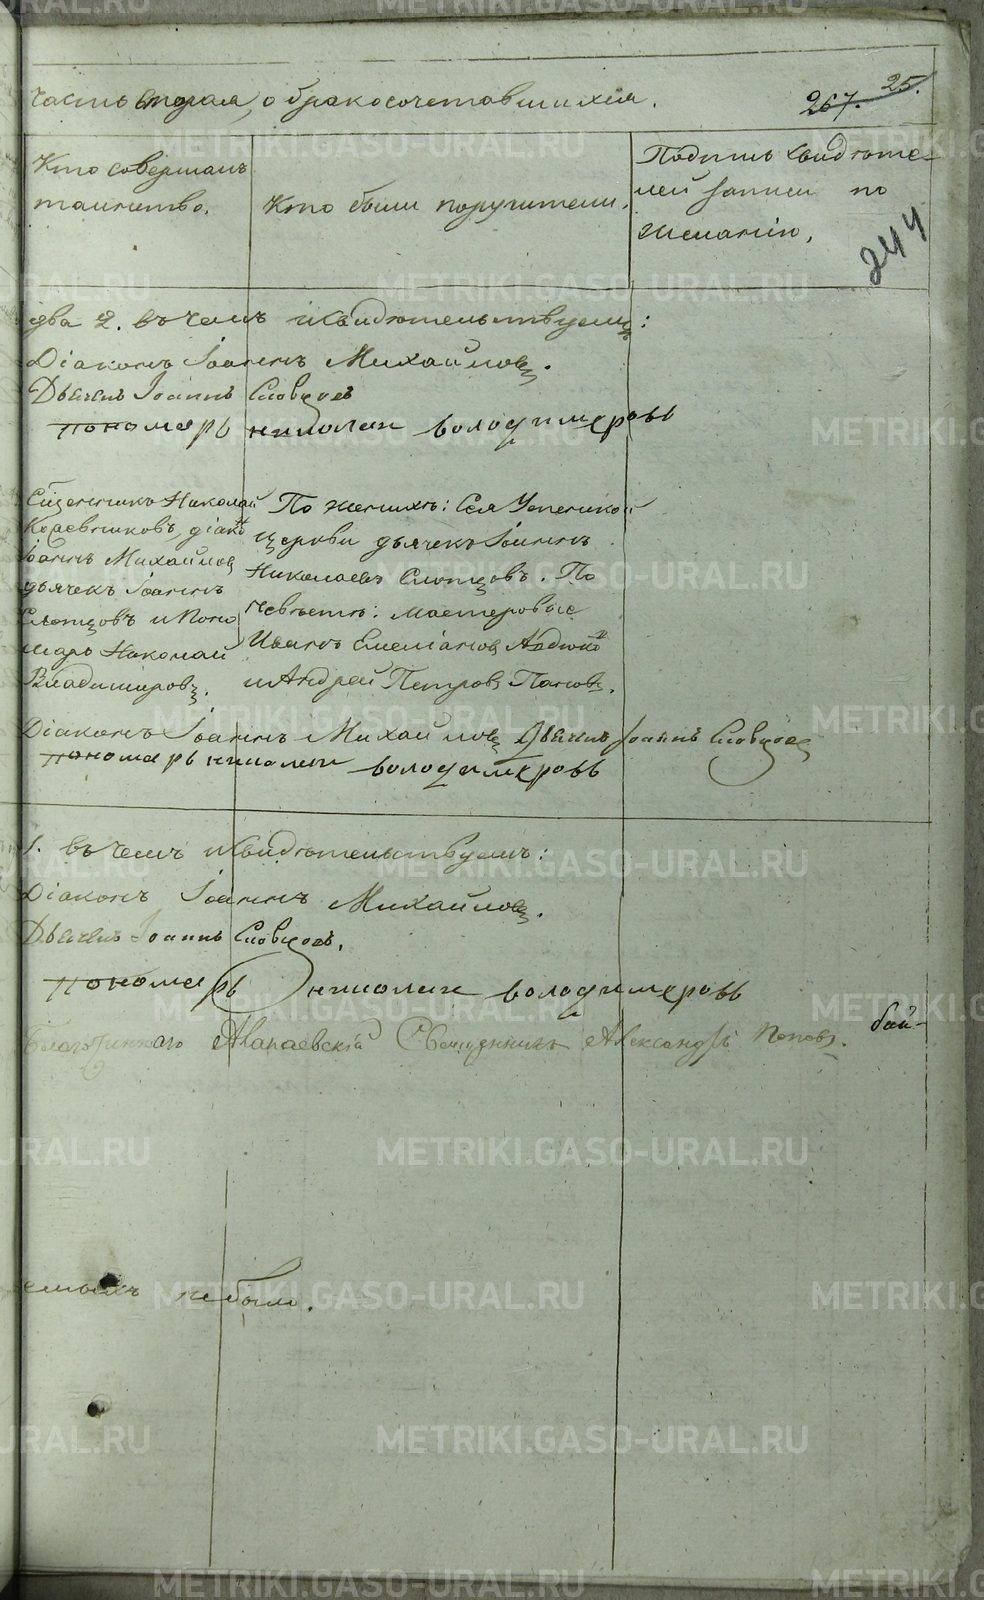 часть вторая, о бракосочетавшихся.
267. 25.
Кто совершалъ таинство.
Кто были поручители.
Подпись свидѣте-
лей записи по
желанію,
244
два 2. въ чемъ и свидѣтельствуемъ:
Діаконъ Іоаннъ Михайловъ.
Дьячекъ Іоаннъ Словцовъ
пономарь николаи володимеровъ
Священникъ Николай
діаконъ
Іоаннъ Михайловъ
дьячекъ Іоаннъ
Словцовъ и Поно
марь Николай
Владимировъ.
По женихѣ: Сея Успенской
церкви дьячекъ Іоаннъ
Николаевъ Словцовъ. По
невѣстѣ: мастеровые
Иванъ Емеліановъ
и Андрей Петровъ Пановъ.
Діаконъ Іоаннъ Михайловъ Дьячекъ Іоаннъ Словцовъ
пономарь николаи володимеровъ
1. въ чемъ и свидѣтельствуемъ:
Діаконъ Іоаннъ Михайловъ.
Дьячекъ Іоаннъ Словцовъ.
пономарь николаи володимеровъ
Алапаевскій Священникъ Александръ Поповъ.
бай-
не было.
METRIKI.GASO-URAL.RU